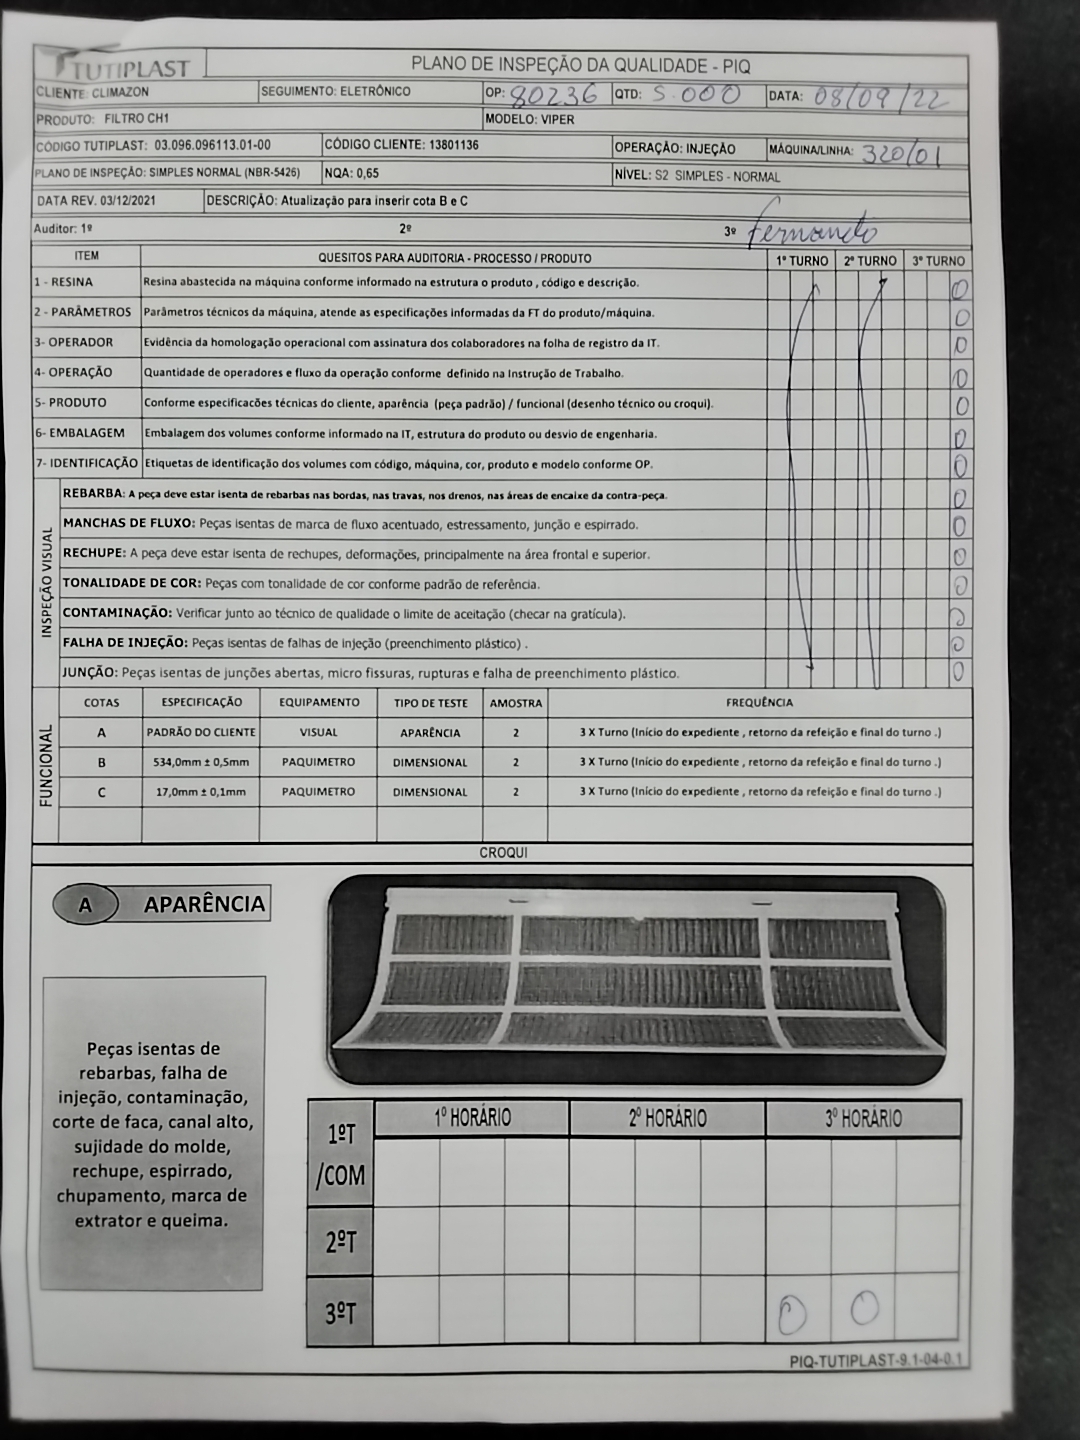 TUTIPLAST
PLANO DE INSPEÇÃO DA QUALIDADE - PIQ
CLIENTE: CLIMAZON SEGUIMENTO: ELETRÔNICO OP: 80236 QTD: 5.000 DATA: 08/09/22
PRODUTO: FILTRO CH1 MODELO: VIPER
CÓDIGO TUTIPLAST: 03.096.096113.01-00 CÓDIGO CLIENTE: 13801136 OPERAÇÃO: INJEÇÃO MÁQUINA/LINHA: 320/01
PLANO DE INSPEÇÃO: SIMPLES NORMAL (NBR-5426) NQA: 0,65 NÍVEL: S2 SIMPLES - NORMAL
DATA REV. 03/12/2021 DESCRIÇÃO: Atualização para inserir cota B e C
Auditor: 1º 2º 3º Fernando
ITEM QUESITOS PARA AUDITORIA - PROCESSO / PRODUTO 1º TURNO 2º TURNO 3º TURNO
1 - RESINA Resina abastecida na máquina conforme informado na estrutura o produto , código e descrição. O
2 - PARÂMETROS Parâmetros técnicos da máquina, atende as especificações informadas da FT do produto/máquina. O
3- OPERADOR Evidência da homologação operacional com assinatura dos colaboradores na folha de registro da IT. O
4- OPERAÇÃO Quantidade de operadores e fluxo da operação conforme definido na Instrução de Trabalho. O
5- PRODUTO Conforme especificacões técnicas do cliente, aparência (peça padrão) / funcional (desenho técnico ou croqui). O
6- EMBALAGEM Embalagem dos volumes conforme informado na IT, estrutura do produto ou desvio de engenharia. O
7- IDENTIFICAÇÃO Etiquetas de identificação dos volumes com código, máquina, cor, produto e modelo conforme OP. O
INSPEÇÃO VISUAL
REBARBA: A peça deve estar isenta de rebarbas nas bordas, nas travas, nos drenos, nas áreas de encaixe da contra-peça. O
MANCHAS DE FLUXO: Peças isentas de marca de fluxo acentuado, estressamento, junção e espirrado. O
RECHUPE: A peça deve estar isenta de rechupes, deformações, principalmente na área frontal e superior. O
TONALIDADE DE COR: Peças com tonalidade de cor conforme padrão de referência. O
CONTAMINAÇÃO: Verificar junto ao técnico de qualidade o limite de aceitação (checar na gratícula). O
FALHA DE INJEÇÃO: Peças isentas de falhas de injeção (preenchimento plástico) . O
JUNÇÃO: Peças isentas de junções abertas, micro fissuras, rupturas e falha de preenchimento plástico. O
FUNCIONAL
COTAS ESPECIFICAÇÃO EQUIPAMENTO TIPO DE TESTE AMOSTRA FREQUÊNCIA
A PADRÃO DO CLIENTE VISUAL APARÊNCIA 2 3 X Turno (Início do expediente , retorno da refeição e final do turno .)
B 534,0mm ± 0,5mm PAQUIMETRO DIMENSIONAL 2 3 X Turno (Início do expediente , retorno da refeição e final do turno .)
C 17,0mm ± 0,1mm PAQUIMETRO DIMENSIONAL 2 3 X Turno (Início do expediente , retorno da refeição e final do turno .)
CROQUI
A APARÊNCIA
Peças isentas de
rebarbas, falha de
injeção, contaminação,
corte de faca, canal alto,
sujidade do molde,
rechupe, espirrado,
chupamento, marca de
extrator e queima.
1ºT /COM 1º HORÁRIO 2º HORÁRIO 3º HORÁRIO
2ºT
3ºT O O
PIQ-TUTIPLAST-9.1-04-0.1